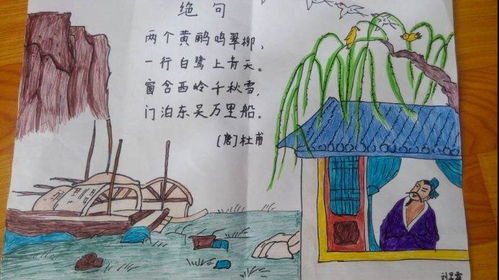 绝句
两个黄鹂鸣翠柳，
一行白鹭上青天。
窗含西岭千秋雪，
门泊东吴万里船。
[唐]杜甫